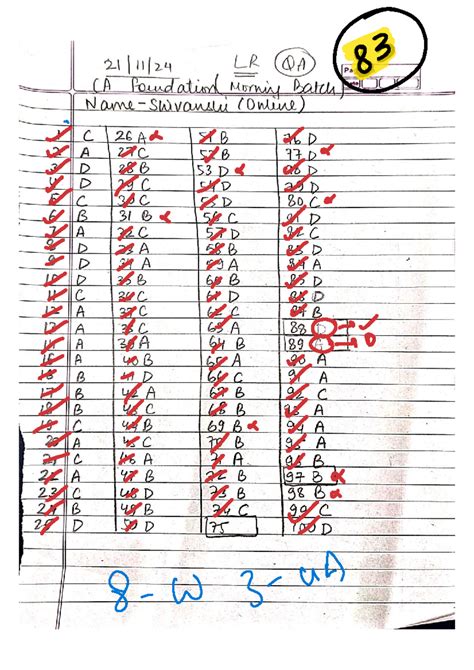 83
21/11/24 LR QA
CA Foundation Morning Batch
Name - Shivanshi (Online)
1 C 26 A 51 B 76 D
2 A 27 C 52 B 77 D
3 D 28 B 53 D 78 D
4 D 29 C 54 D 79 D
5 C 30 C 55 D 80 C
6 B 31 B 56 C 81 D
7 A 32 C 57 D 82 C
8 D 33 A 58 B 83 D
9 D 34 A 59 A 84 A
10 D 35 B 60 B 85 D
11 C 36 C 61 D 86 D
12 A 37 C 62 C 87 B
13 A 38 C 63 A 88
14 A 39 A 64 B 89 A
15 A 40 B 65 A 90 A
16 B 41 D 66 C 91 A
17 B 42 A 67 B 92 C
18 B 43 C 68 B 93 A
19 C 44 B 69 B 94 A
20 A 45 C 70 B 95 A
21 C 46 A 71 A 96 B
22 A 47 B 72 B 97 B
23 C 48 D 73 B 98 B
24 B 49 B 74 C 99 C
25 D 50 D 75 100 D
8 - W 3 - UA